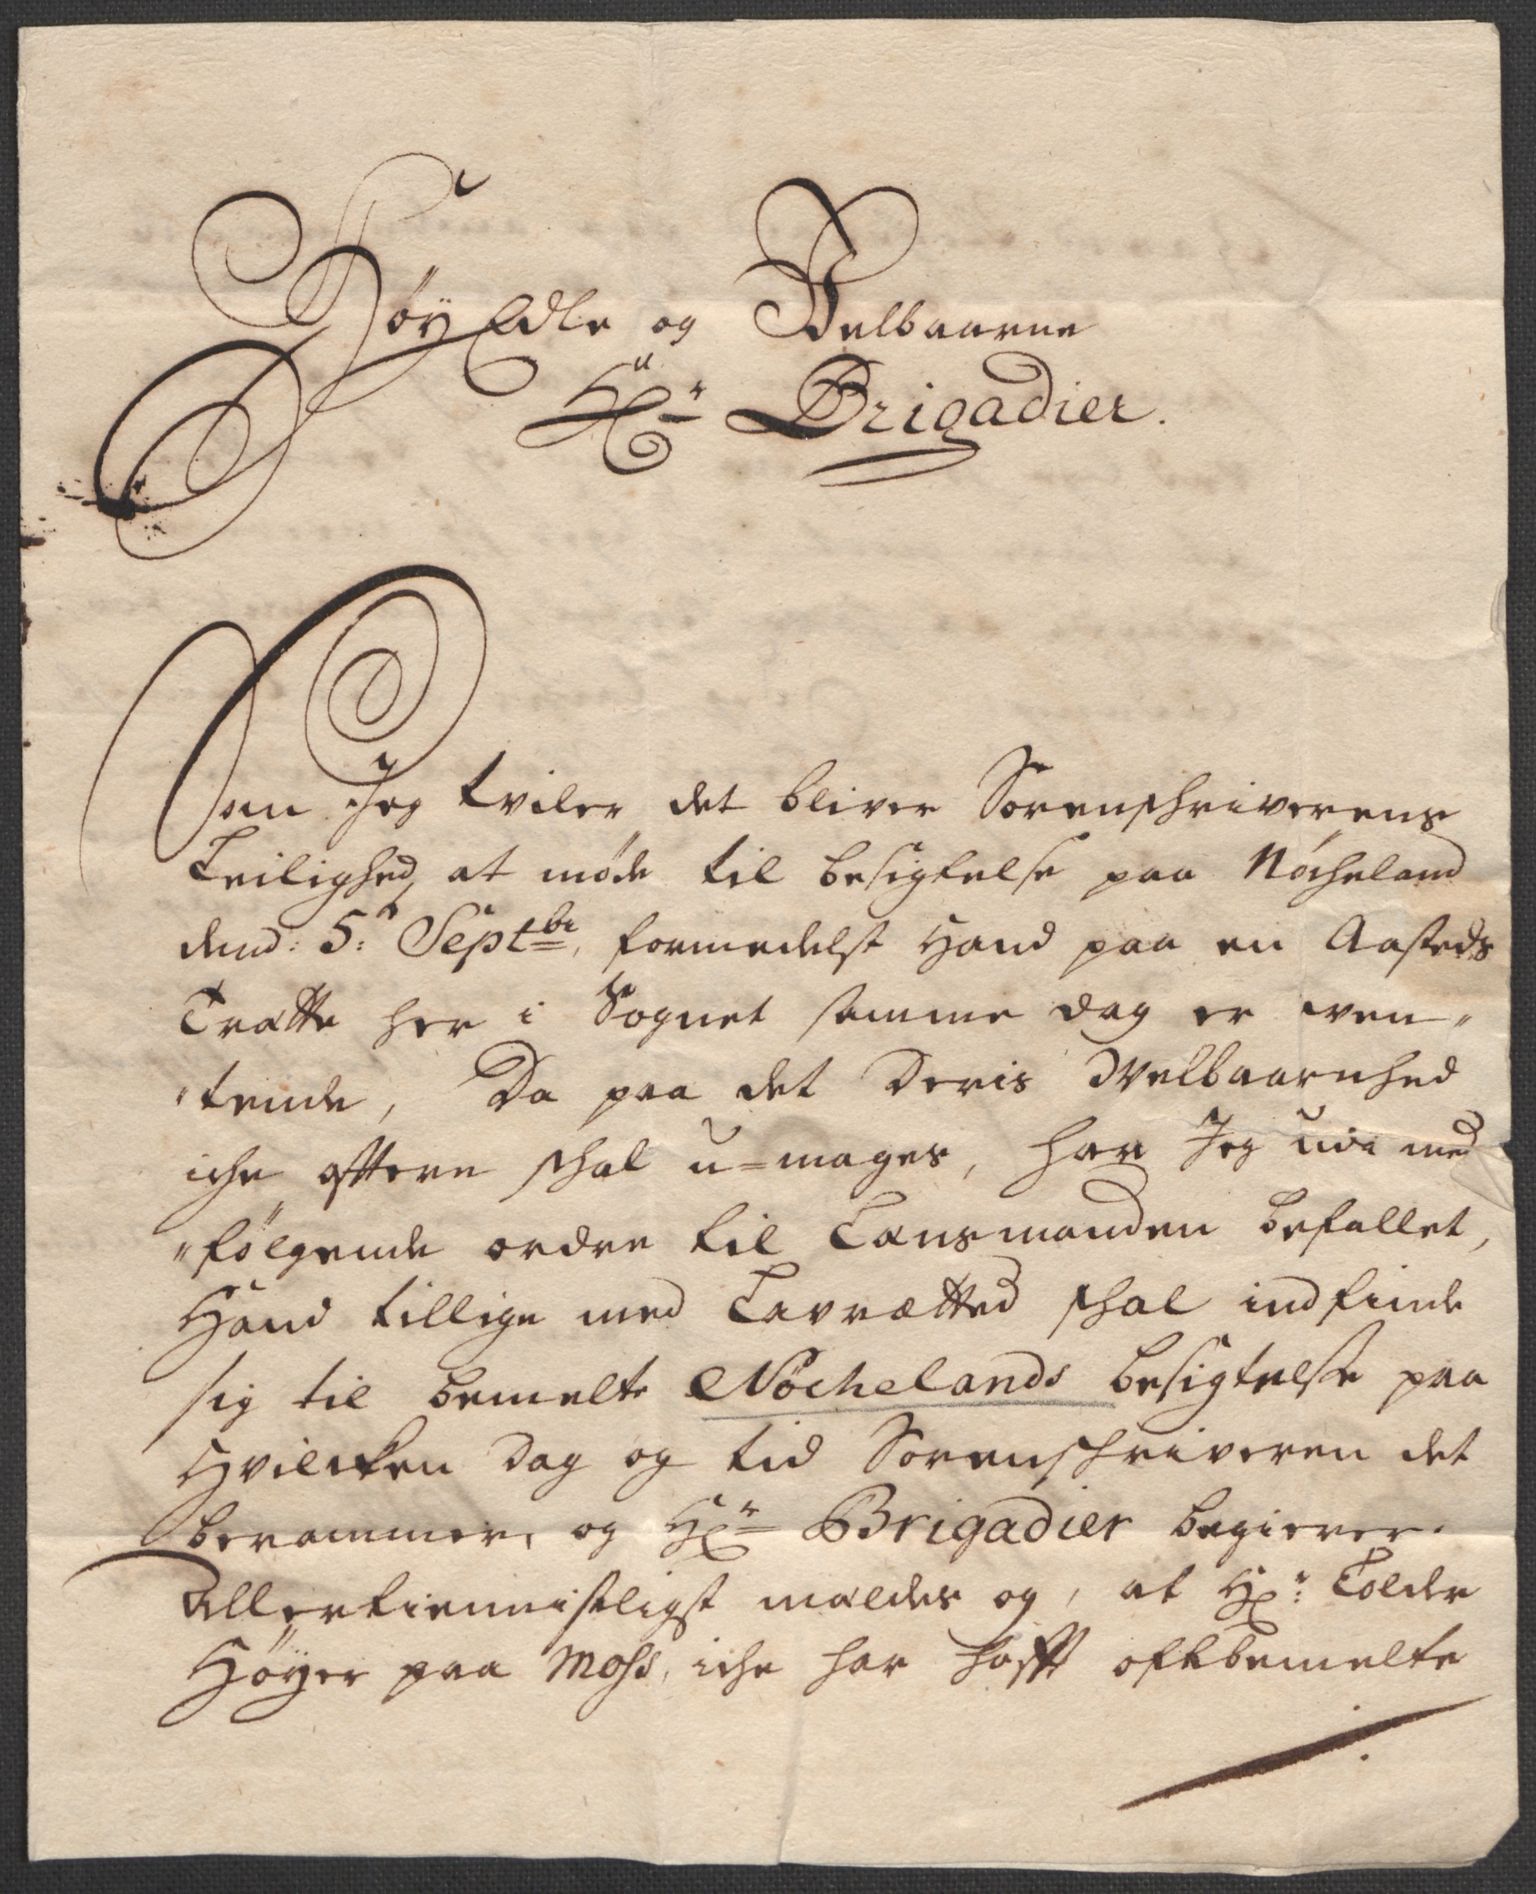 Høy Edle og Velbaarne
Hr: Brigadier.
Som Jeg tviler det bliver Sorenschriverens
Leilighed, at møde til besigtelse paa Nócheland
dend: 5: Septbr, formedelst Hand paa en Aasteds
Trætte her i Sognet samme dag er ven-
tende, Da paa det Deris Welbaarnhed
iche oftere schal u-mages, har Jeg udi med
følgende ordre til Lænsmanden befallet,
Hand tillige med Lavrætted schal indfinde
sig til bemelte Nóchelands besigtelse paa
Hvilcken Dag og tid Sorenschriveren det
berammer, og Hr: Brigadier begierer.
Allertiennistligst mældes og, at Hr: Tolder
Höyer paa Moss, iche har hafft oftbemelte